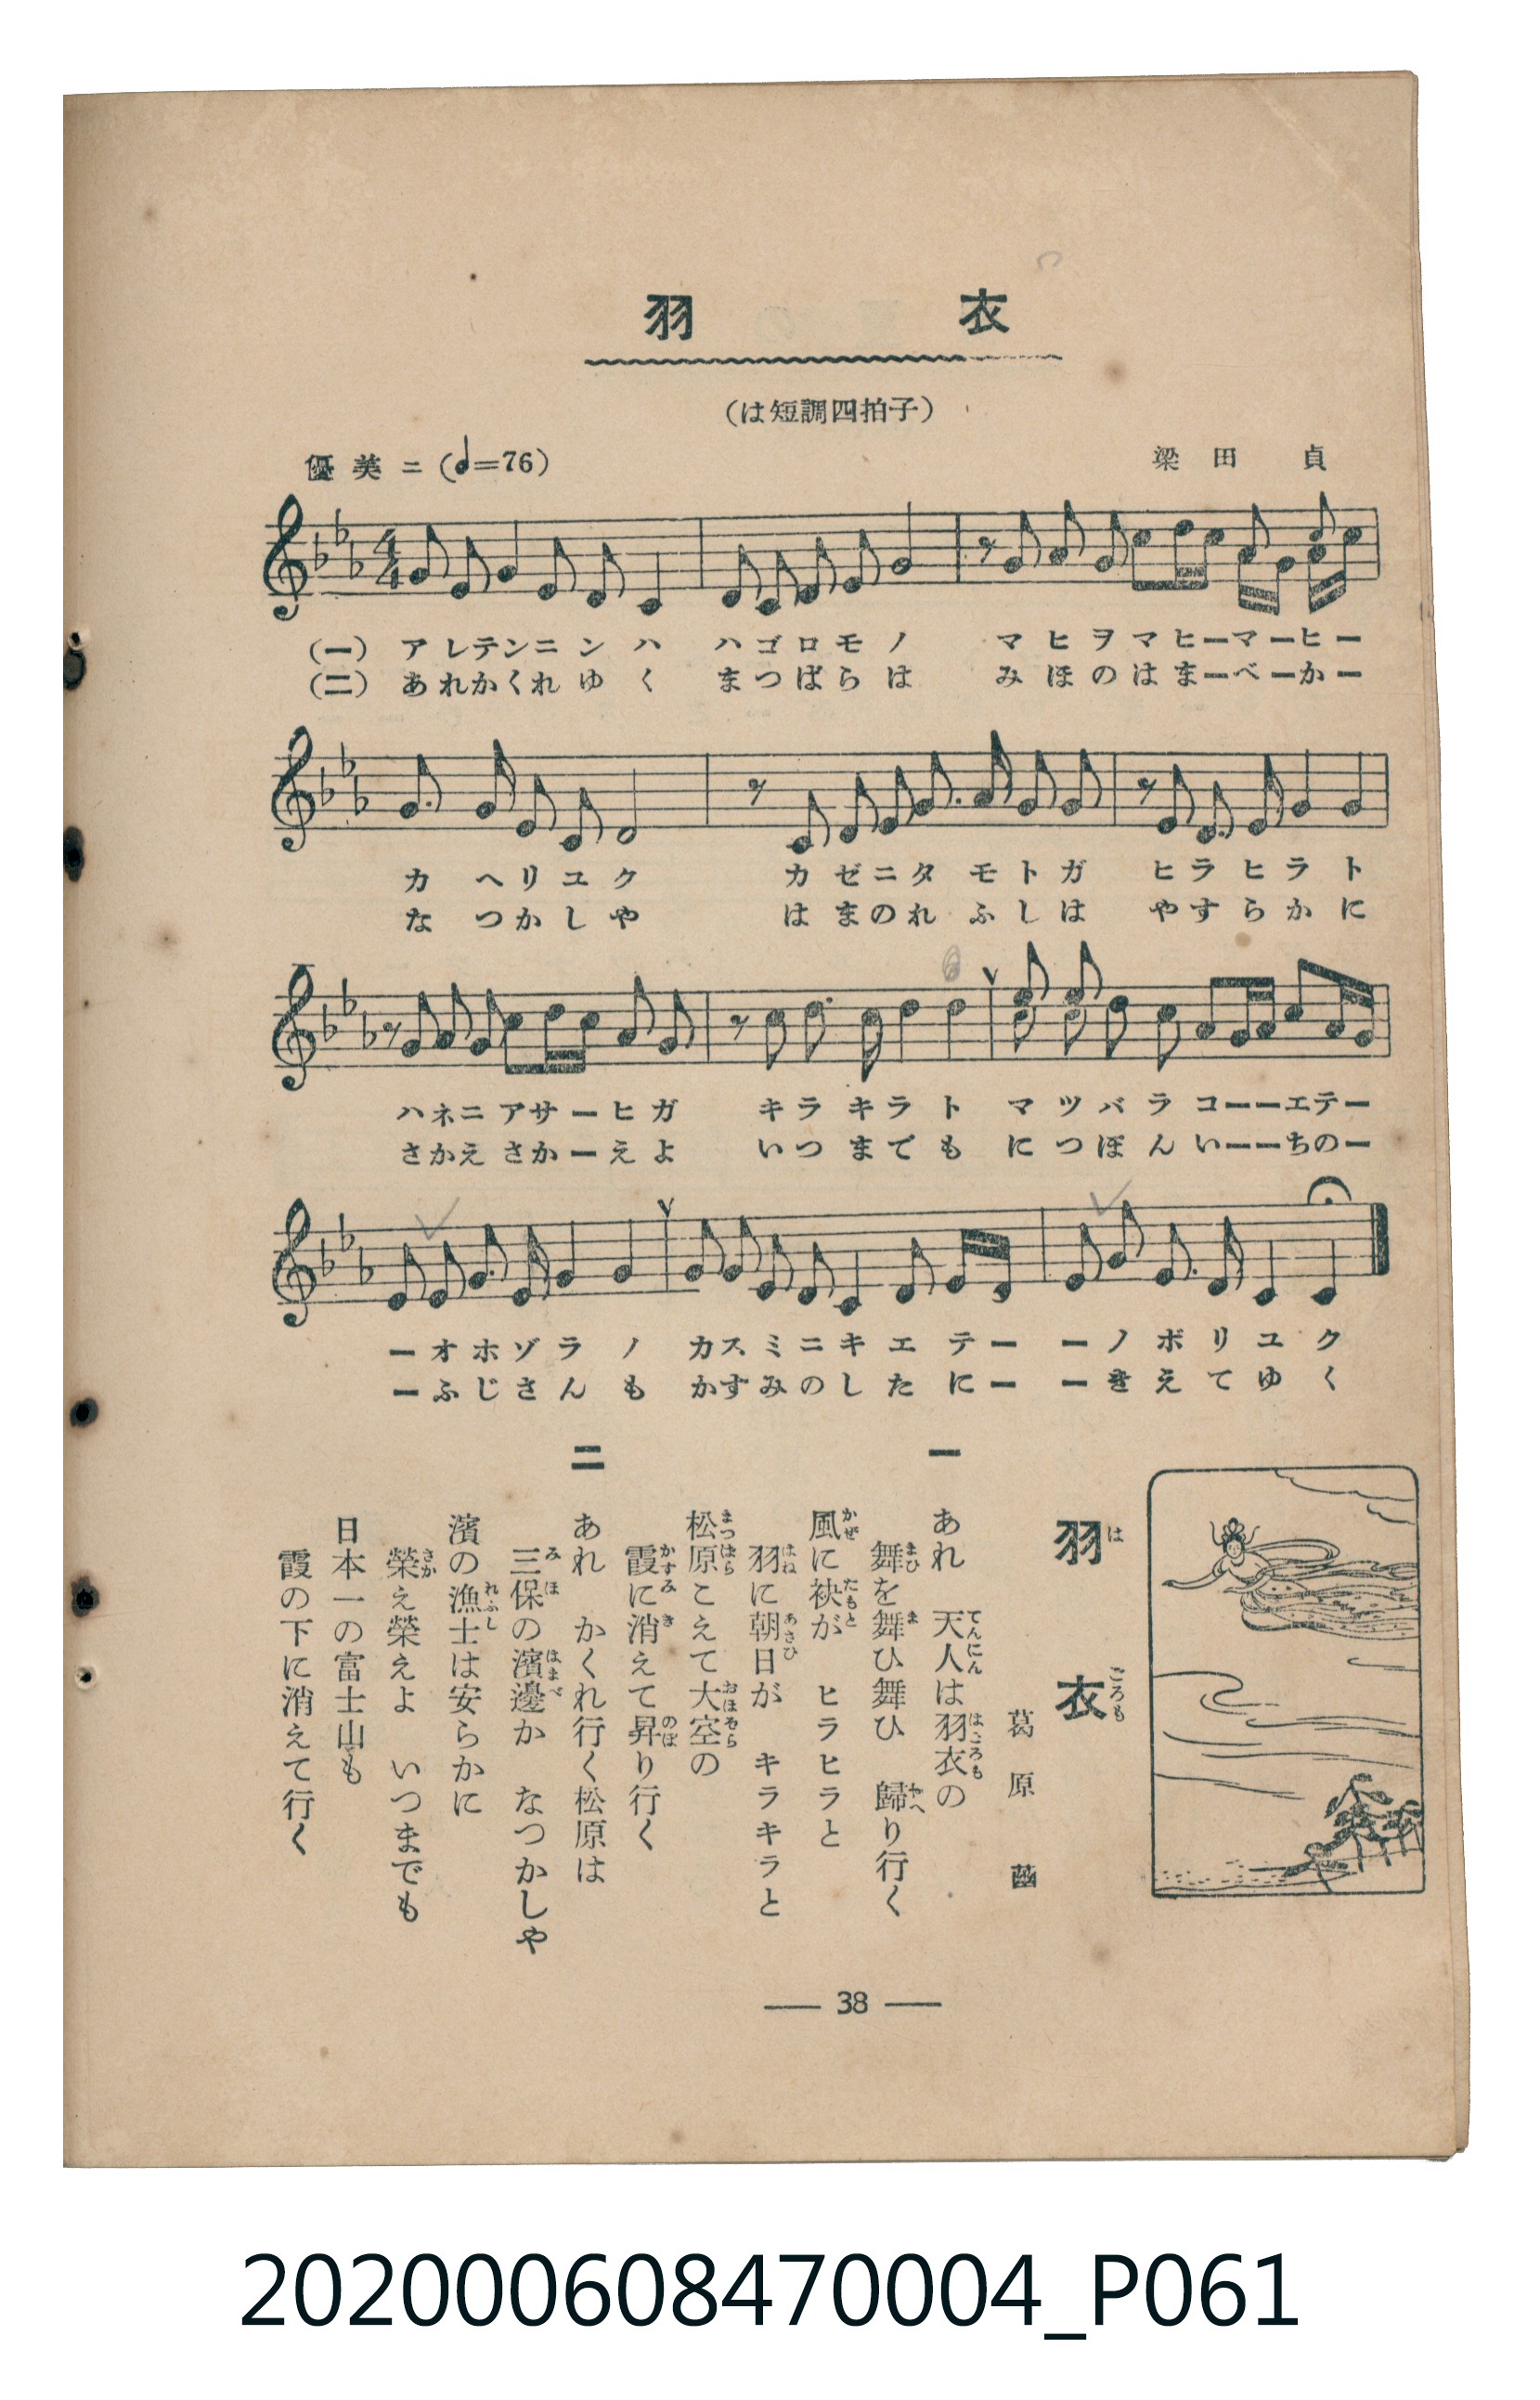 羽衣
(は短調四拍子)
優美ニ(=76)
梁田 貞
(一) アレテンニンハ ハゴロモノ マヒヲマヒーマーヒー
(二) あれかくれゆく まつばらは みほのはまーべーかー
カヘリユク カゼニタモトガ ヒラヒラト
なつかしや はまのれふしは やすらかに
ハネニアサーヒガ キラキラト マツバラコーーエテー
さかえさかーえよ いつまでも につぽんいーーちのー
ーオホゾラノ カスミニキエテー ーノボリユク
ーふじさんも かすみのしたにー ーきえてゆく
羽衣
はごろも
葛原 𦱳
一
あれ 天人は羽衣の
てんにん はごろも
舞を舞ひ舞ひ 歸り行く
まひ ま かへ
風に袂が ヒラヒラと
かぜ たもと
羽に朝日が キラキラと
はね あさひ
松原こえて大空の
まつはら おほぞら
霞に消えて昇り行く
かすみ き のぼ
二
あれ かくれ行く松原は
三保の濱邊か なつかしや
みほ はまべ
濱の漁士は安らかに
れふし
榮え榮えよ いつまでも
さか
日本一の富士山も
霞の下に消えて行く
― 38 ―
202000608470004_P061